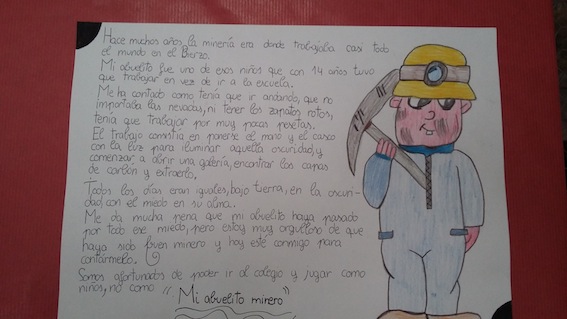 Hace muchos años, la minería era donde trabajaba casi todo
el mundo en el Bierzo.
Mi abuelito fue uno de esos niños que con 14 años tuvo
que trabajar en vez de ir a la escuela.
Me ha contado como tenía que ir andando, que no
importaba las nevadas, ni tener los zapatos rotos,
tenía que trabajar por muy pocas pesetas.
El trabajo consitía en ponerse el mono y el casco
con la luz para iluminar aquella oscuridad, y
comenzar a abrir una galería, encontrar las capas
de carbón y extraerlo,
Todos los días eran iguales, bajo tierra, en la oscuri-
dad, con el miedo en su alma.
Me da mucha pena que mi abuelito haya pasado
por todo ese miedo, pero estoy muy orgulloso de que
haya sido buen minero y hoy esté conmigo para
contármelo.
Somos afortunados de poder ir al colegio y jugar como
niños, no como "Mi abuelito minero"